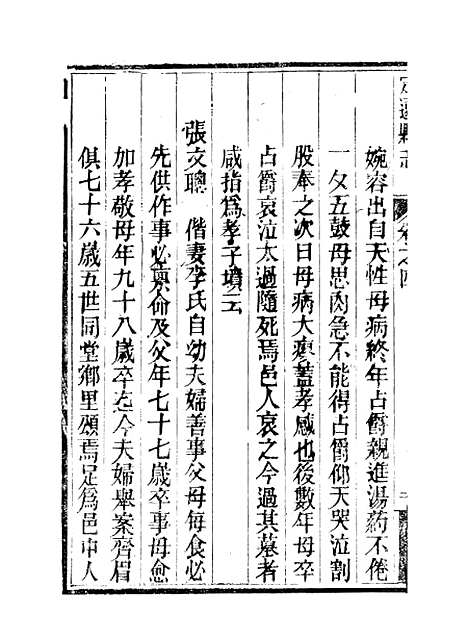 定遠縣志 卷之四 二
婉容出自天性母病終年占爵親進湯葯不倦
一夕五鼓母思肉急不能得占爵仰天哭泣割
股奉之次日母病大痊蓋孝感也後數年母卒
占爵哀泣太過隨死焉邑人哀之今過其墓者
咸指爲孝子墳云
張文聰 偕妻李氏自幼夫婦善事父母每食必
先供作事必稟命及父年七十七歲卒事母愈
加孝敬母年九十八歲卒迄今夫婦舉案齊眉
俱七十六歲五世同堂鄉里頌焉足爲邑中人